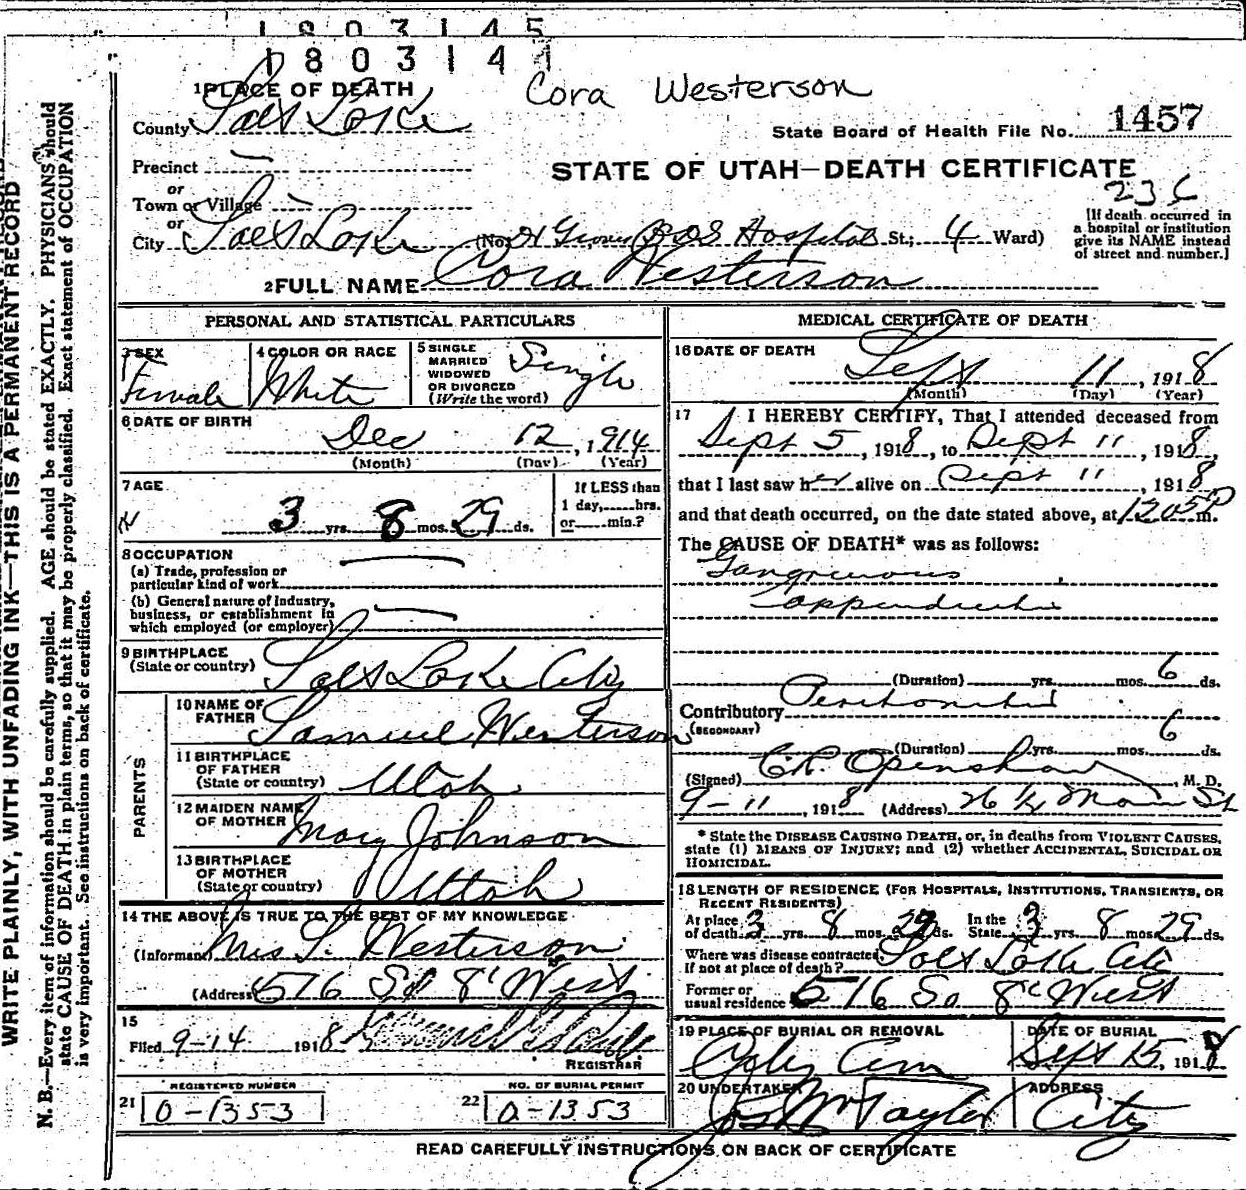 1803145
1803141
Cora Westerson
1 PLACE OF DEATH
County Salt Lake
State Board of Health File No. 1457
Precinct —
STATE OF UTAH—DEATH CERTIFICATE
or
Town or Village —
or
City Salt Lake (No. Hospital St.; 4 Ward)
[If death occurred in
a hospital or institution
give its NAME instead
of street and number.]
2 FULL NAME Cora Westerson
PERSONAL AND STATISTICAL PARTICULARS
3 SEX
Female
4 COLOR OR RACE
White
5 SINGLE
MARRIED
WIDOWED
OR DIVORCED
(Write the word)
Single
6 DATE OF BIRTH
Dec 12, 1914
(Month) (Day) (Year)
7 AGE
3 yrs. 8 mos. 29 ds.
If LESS than
1 day,.....hrs.
or.....min.?
8 OCCUPATION
(a) Trade, profession or
particular kind of work
(b) General nature of Industry,
business, or establishment in
which employed (or employer)
9 BIRTHPLACE
(State or country) Salt Lake City
PARENTS
10 NAME OF
FATHER Samuel Westerson
11 BIRTHPLACE
OF FATHER
(State or country) Utah
12 MAIDEN NAME
OF MOTHER Mary Johnson
13 BIRTHPLACE
OF MOTHER
(State or country) Utah
14 THE ABOVE IS TRUE TO THE BEST OF MY KNOWLEDGE
(Informant) Mrs S. Westerson
(Address) 576 So 8th West
15
Filed 9-14 1918
REGISTRAR
REGISTERED NUMBER
21 0-1353
NO. OF BURIAL PERMIT
22 0-1353
MEDICAL CERTIFICATE OF DEATH
16 DATE OF DEATH
Sept 11, 1918
(Month) (Day) (Year)
17 I HEREBY CERTIFY, That I attended deceased from
Sept 5, 1918, to Sept 11, 1918,
that I last saw her alive on Sept 11, 1918
and that death occurred, on the date stated above, at 1205P m.
The CAUSE OF DEATH* was as follows:
Gangrenous
appendicitis
(Duration) yrs. mos. 6 ds.
Contributory Peritonitis
(SECONDARY)
(Duration) yrs. mos. 6 ds.
(Signed) C.R. Openshaw M. D.
9-11, 1918 (Address) Main St
* State the DISEASE CAUSING DEATH, or, in deaths from VIOLENT CAUSES,
state (1) MEANS OF INJURY; and (2) whether ACCIDENTAL, SUICIDAL OR
HOMICIDAL.
18 LENGTH OF RESIDENCE (FOR HOSPITALS, INSTITUTIONS, TRANSIENTS, OR
RECENT RESIDENTS)
At place
of death 3 yrs. 8 mos. 29 ds. In the
State 3 yrs. 8 mos. 29 ds.
Where was disease contracted,
If not at place of death? Salt Lake City
Former or
usual residence 576 So 8th West
19 PLACE OF BURIAL OR REMOVAL
City Cem
DATE OF BURIAL
Sept 15, 1918
20 UNDERTAKER
Jos Wm Taylor
ADDRESS
City
READ CAREFULLY INSTRUCTIONS ON BACK OF CERTIFICATE
WRITE PLAINLY, WITH UNFADING INK—THIS IS A PERMANENT RECORD
N. B.—Every item of information should be carefully supplied. AGE should be stated EXACTLY. PHYSICIANS should
state CAUSE OF DEATH in plain terms, so that it may be properly classified. Exact statement of OCCUPATION
is very important. See instructions on back of certificate.